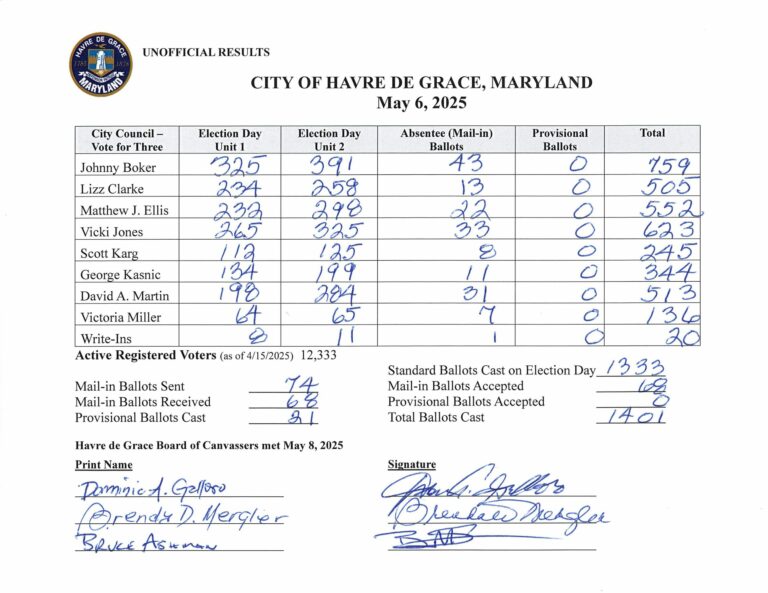 HAVRE DE GRACE
1785 1878
MARYLAND
UNOFFICIAL RESULTS
CITY OF HAVRE DE GRACE, MARYLAND
May 6, 2025
City Council – Vote for Three Election Day Unit 1 Election Day Unit 2 Absentee (Mail-in) Ballots Provisional Ballots Total
Johnny Boker 325 391 43 0 759
Lizz Clarke 234 258 13 0 505
Matthew J. Ellis 232 298 22 0 552
Vicki Jones 265 325 33 0 623
Scott Karg 112 125 8 0 245
George Kasnic 134 199 11 0 344
David A. Martin 198 284 31 0 513
Victoria Miller 64 65 7 0 136
Write-Ins 8 11 1 0 20
Active Registered Voters (as of 4/15/2025) 12,333
Standard Ballots Cast on Election Day 1333
Mail-in Ballots Sent 74
Mail-in Ballots Accepted 68
Mail-in Ballots Received 68
Provisional Ballots Accepted 0
Provisional Ballots Cast 21
Total Ballots Cast 1401
Havre de Grace Board of Canvassers met May 8, 2025
Print Name Signature
Dominic A. Galloso
Brenda D. Mergler
Bruce Ashman